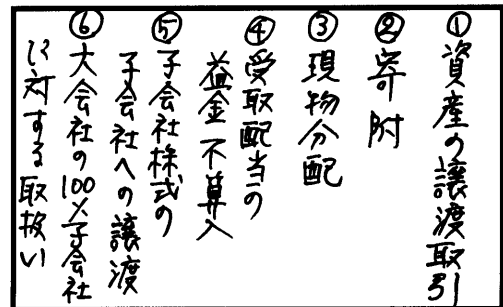 ①資産の譲渡取引
②寄附
③現物分配
④受取配当の
益金不算入
⑤子会社株式の
子会社への譲渡
⑥大会社の100%子会社
に対する取扱い